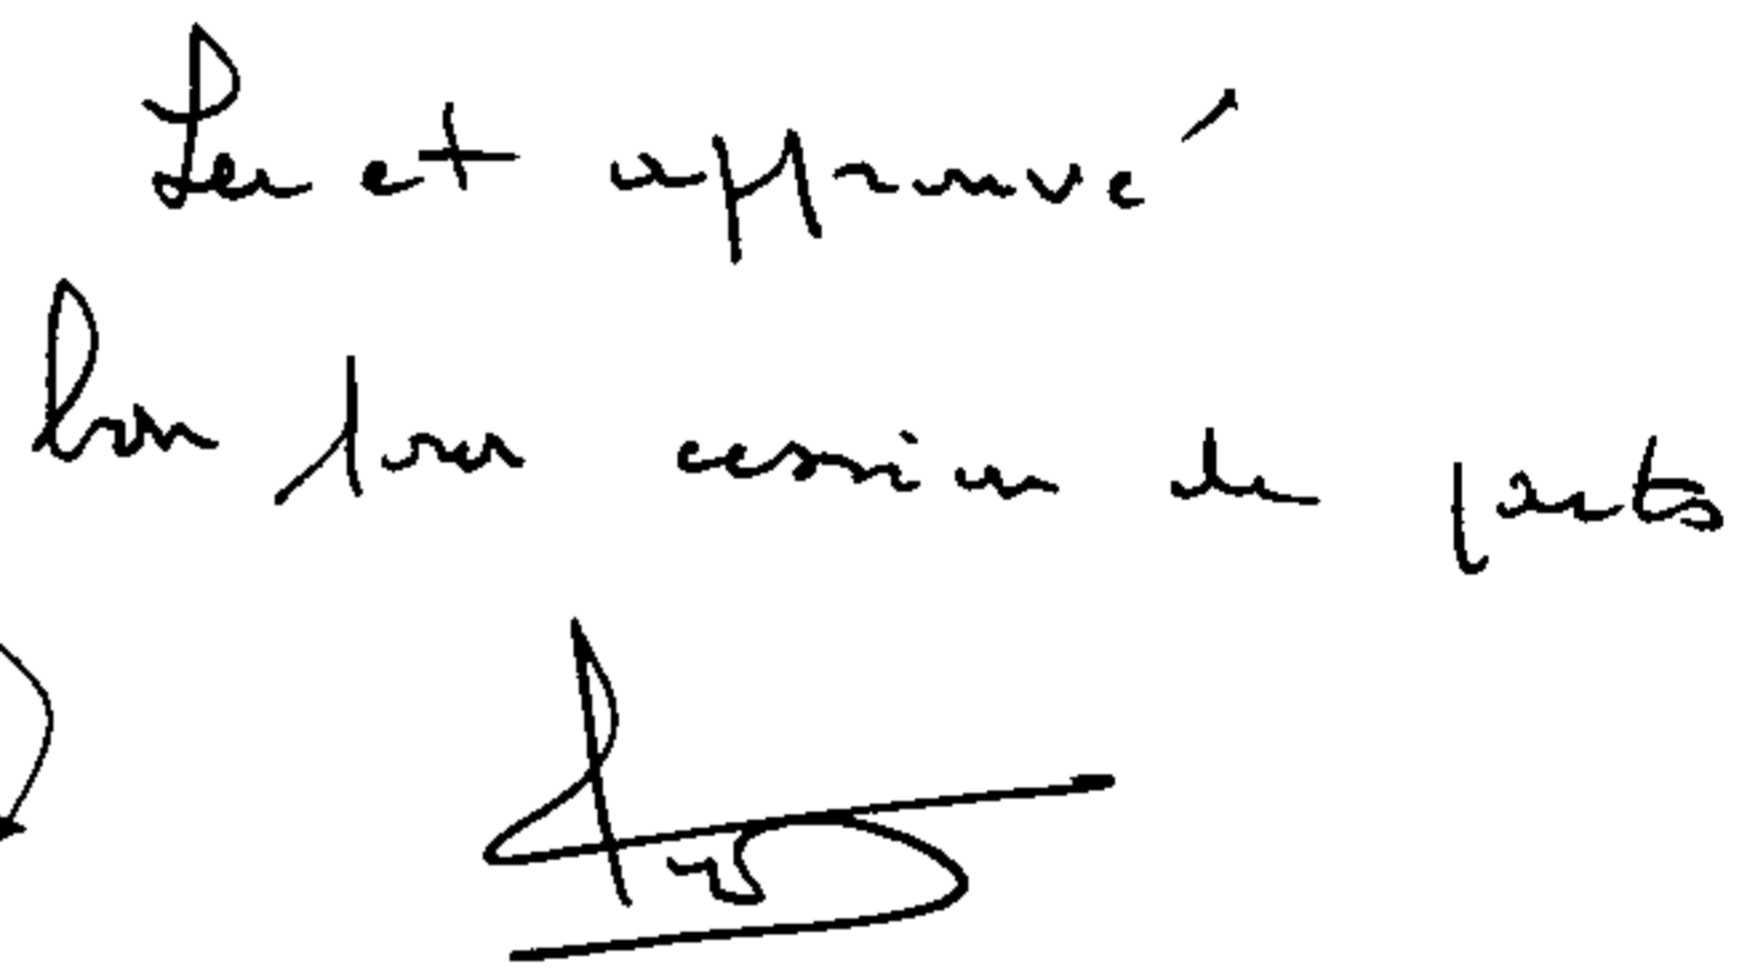 Lu et approuvé
bon pour cession de parts